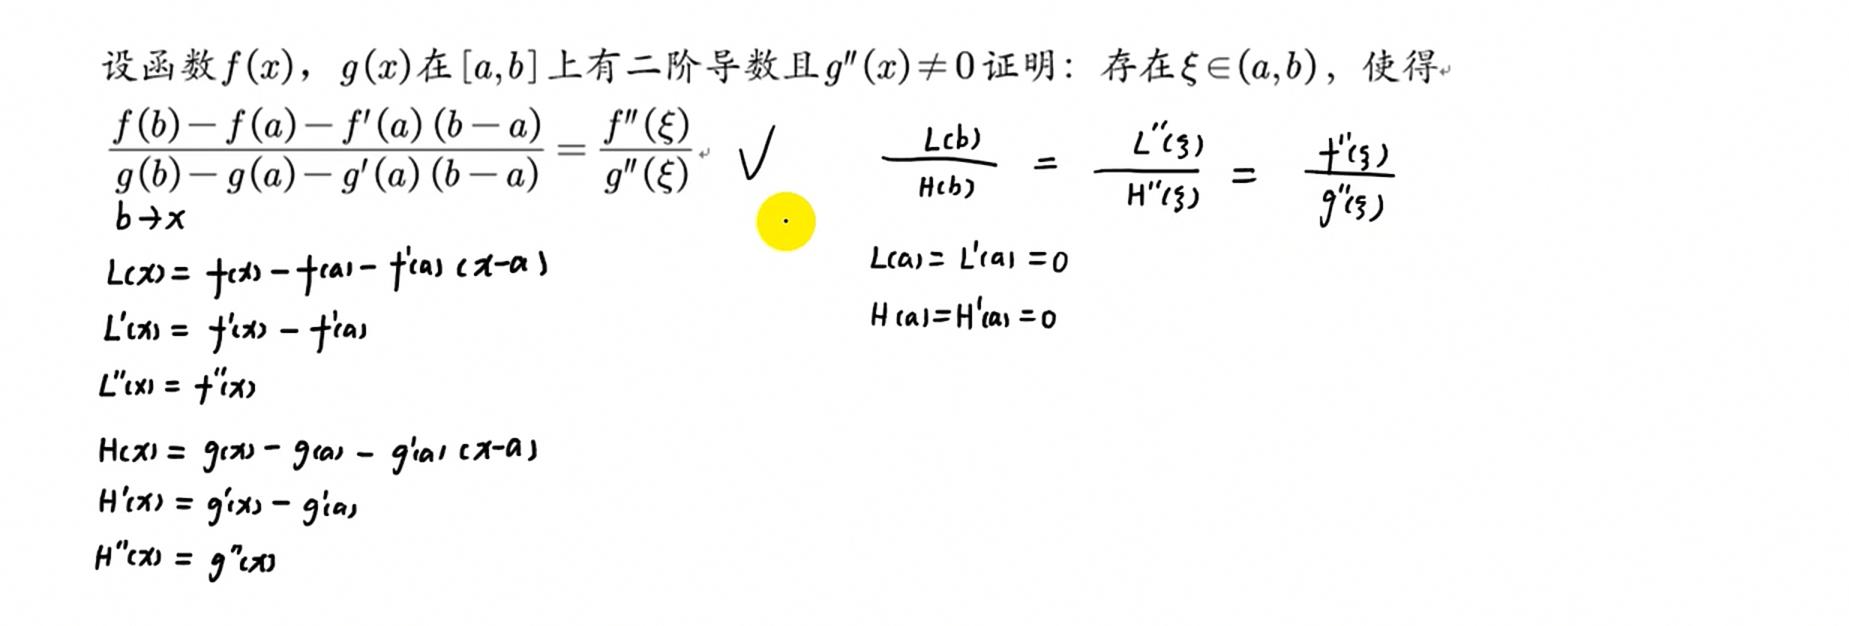 设函数f(x)，g(x)在[a,b]上有二阶导数且g″(x)≠0证明：存在ξ∈(a,b)，使得
\frac{f(b)-f(a)-f′(a)(b-a)}{g(b)-g(a)-g′(a)(b-a)}=\frac{f″(ξ)}{g″(ξ)} ✓
b→x
L(x)= f(x)-f(a)-f′(a)(x-a)
L′(x)= f′(x)-f′(a)
L″(x)= f″(x)
H(x)= g(x)-g(a)-g′(a)(x-a)
H′(x)= g′(x)-g′(a)
H″(x)= g″(x)
\frac{L(b)}{H(b)} = \frac{L″(ξ)}{H″(ξ)} = \frac{f″(ξ)}{g″(ξ)}
L(a)= L′(a)=0
H(a)=H′(a)=0